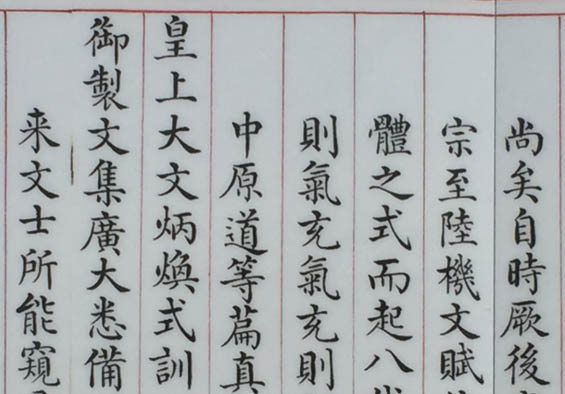 尚矣自時厥後
宗至陸機文賦
體之式而起八代
則氣充氣充則
中原道等篇真
皇上大文炳煥式訓
御製文集廣大悉備
来文士所能窺